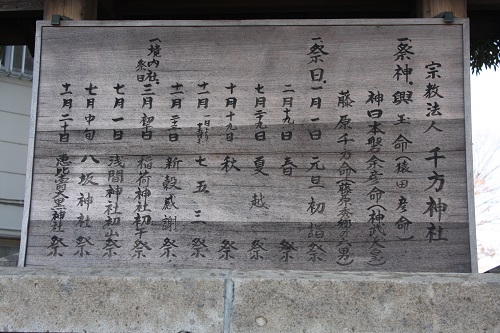 宗教法人 千方神社
一、祭神、興玉命(猿田彦命)
神日本磐余彦命(神武天皇)
藤原千方命(藤原秀郷六男)
一、祭日、一月一日 元旦初詣祭
二月十九日 春祭
七月二十九日 夏越祭
十月十九日 秋祭
十一月 七五三祭
十一月二十三日 新穀感謝祭
一、境内社、祭日 三月初午 稲荷神社初午祭
七月一日 浅間神社初山祭
七月中旬 八坂神社祭
十一月二十日 恵比寿大黒神社祭